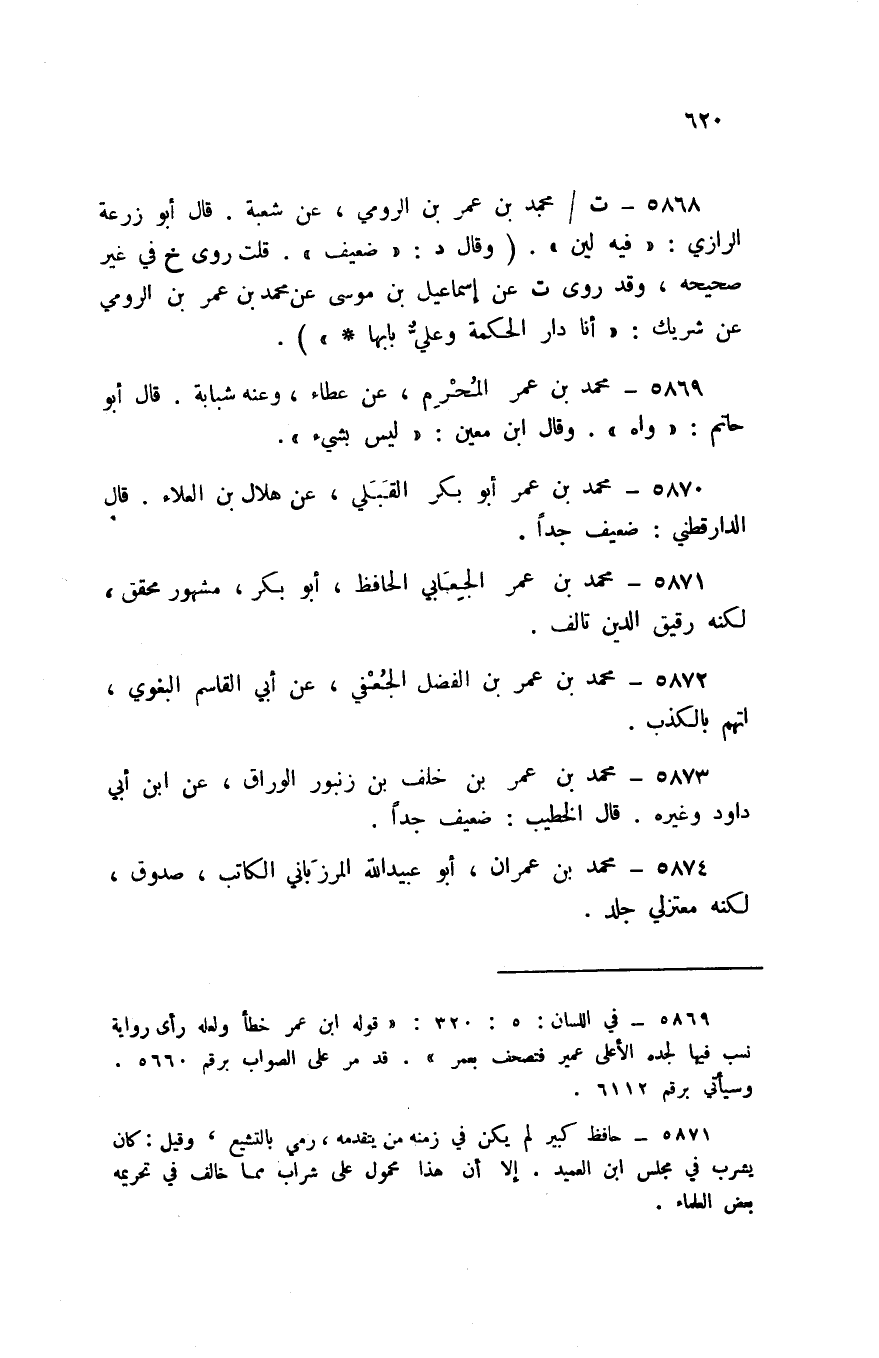 ٦٢٠
٥٨٦٨ ـ ت / محمد بن عمر بن الرومي ، عن شعبة . قال أبو زرعة
الرازي : « فيه لين » . ( وقال د : « ضعيف » . قلت روى خ في غير
صحيحه ، وقد روى ت عن إسماعيل بن موسى عن محمد بن عمر بن الرومي
عن شريك : « أنا دار الحكمة وعليٌّ بابها * » ) .
٥٨٦٩ ـ محمد بن عمر المُحْرِم ، عن عطاء ، وعنه شبابة . قال أبو
حاتم : « واه » . وقال ابن معين : « ليس بشيء » .
٥٨٧٠ ـ محمد بن عمر أبو بكر القَبَلي ، عن هلال بن العلاء . قال
الدارقطني : ضعيف جداً .
٥٨٧١ ـ محمد بن عمر الجِعَابي الحافظ ، أبو بكر ، مشهور محقق ،
لكنه رقيق الدين تالف .
٥٨٧٢ ـ محمد بن عمر بن الفضل الجُعْفي ، عن أبي القاسم البغوي ،
اتهم بالكذب .
٥٨٧٣ ـ محمد بن عمر بن خلف بن زنبور الوراق ، عن ابن أبي
داود وغيره . قال الخطيب : ضعيف جداً .
٥٨٧٤ ـ محمد بن عمران ، أبو عبيدالله المرزَباني الكاتب ، صدوق ،
لكنه معتزلي جلد .
٥٨٦٩ ـ في اللسان : ٥ : ٣٢٠ : « قوله ابن عمر خطأ ولعله رأى رواية
نسب فيها لجده الأعلى عمير فتصحف بعمر » . قد مر على الصواب برقم ٥٦٦٠ .
وسيأتي برقم ٦١١٢ .
٥٨٧١ ـ حافظ كبير لم يكن في زمنه من يتقدمه ، رمي بالتشيع ، وقيل : كان
يشرب في مجلس ابن العميد . إلا أن هذا محمول على شراب مما خالف في تحريمه
بعض العلماء .